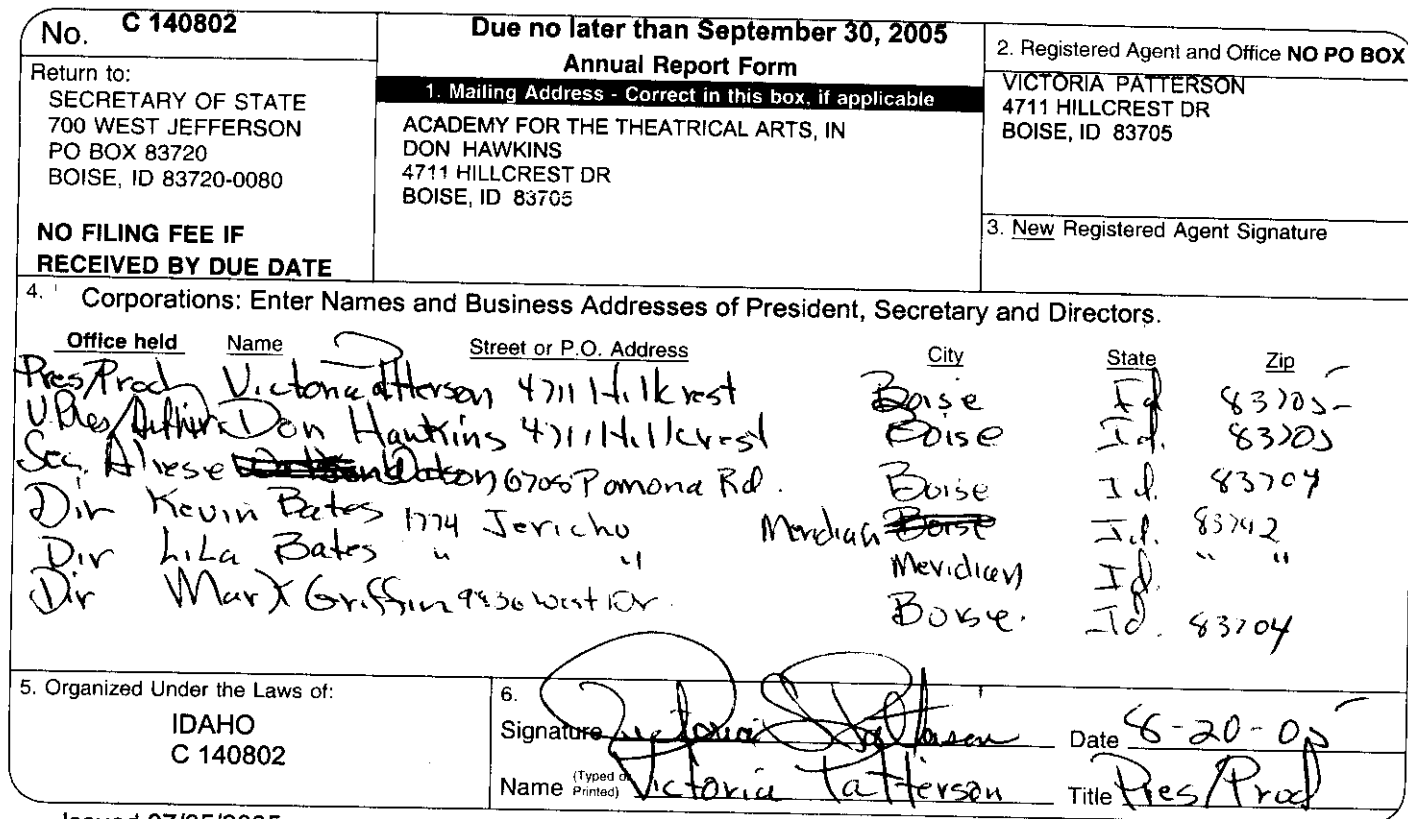 No. C 140802
Return to:
SECRETARY OF STATE
700 WEST JEFFERSON
PO BOX 83720
BOISE, ID 83720-0080
NO FILING FEE IF
RECEIVED BY DUE DATE
Due no later than September 30, 2005
Annual Report Form
1. Mailing Address - Correct in this box, if applicable
ACADEMY FOR THE THEATRICAL ARTS, IN
DON HAWKINS
4711 HILLCREST DR
BOISE, ID 83705
2. Registered Agent and Office NO PO BOX
VICTORIA PATTERSON
4711 HILLCREST DR
BOISE, ID 83705
3. New Registered Agent Signature
4. Corporations: Enter Names and Business Addresses of President, Secretary and Directors.
Office held Name Street or P.O. Address City State Zip
Pres/Prod Victoria Patterson 4711 Hillcrest Boise Id 83705
V.Pres/ Don Hawkins 4711 Hillcrest Boise Id. 83705
Sec. Pomona Rd. Boise Id. 83704
Dir Kevin Bates 1774 Jericho Meridian Id. 83742
Dir LiLa Bates " " Meridian Id. " "
Dir Mark Griffin Boise. Id. 83704
5. Organized Under the Laws of:
IDAHO
C 140802
6.
Signature Victoria Patterson Date 8-20-05
Name (Typed or Printed) Victoria Patterson Title Pres/Prod